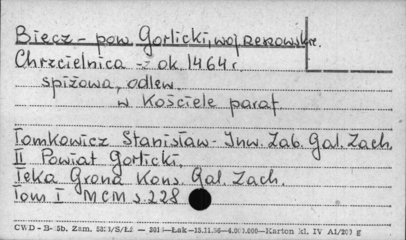 Biecz - pow. Gorlicki, woj. rzeszowskie.
Chrzcielnica - z ok. 1464 r.
spiżowa, odlew.
w kościele paraf.
Tomkowicz Stanisław - Inw. Zab. Gal. Zach.
II Powiat Gorlicki.
Teka Grona Kons. Gal. Zach.
Tom I MCM s. 228
CWD-B-5b. Zam. Łak-15.11.56-4.000.000-Karton kl. IV A1/200 g